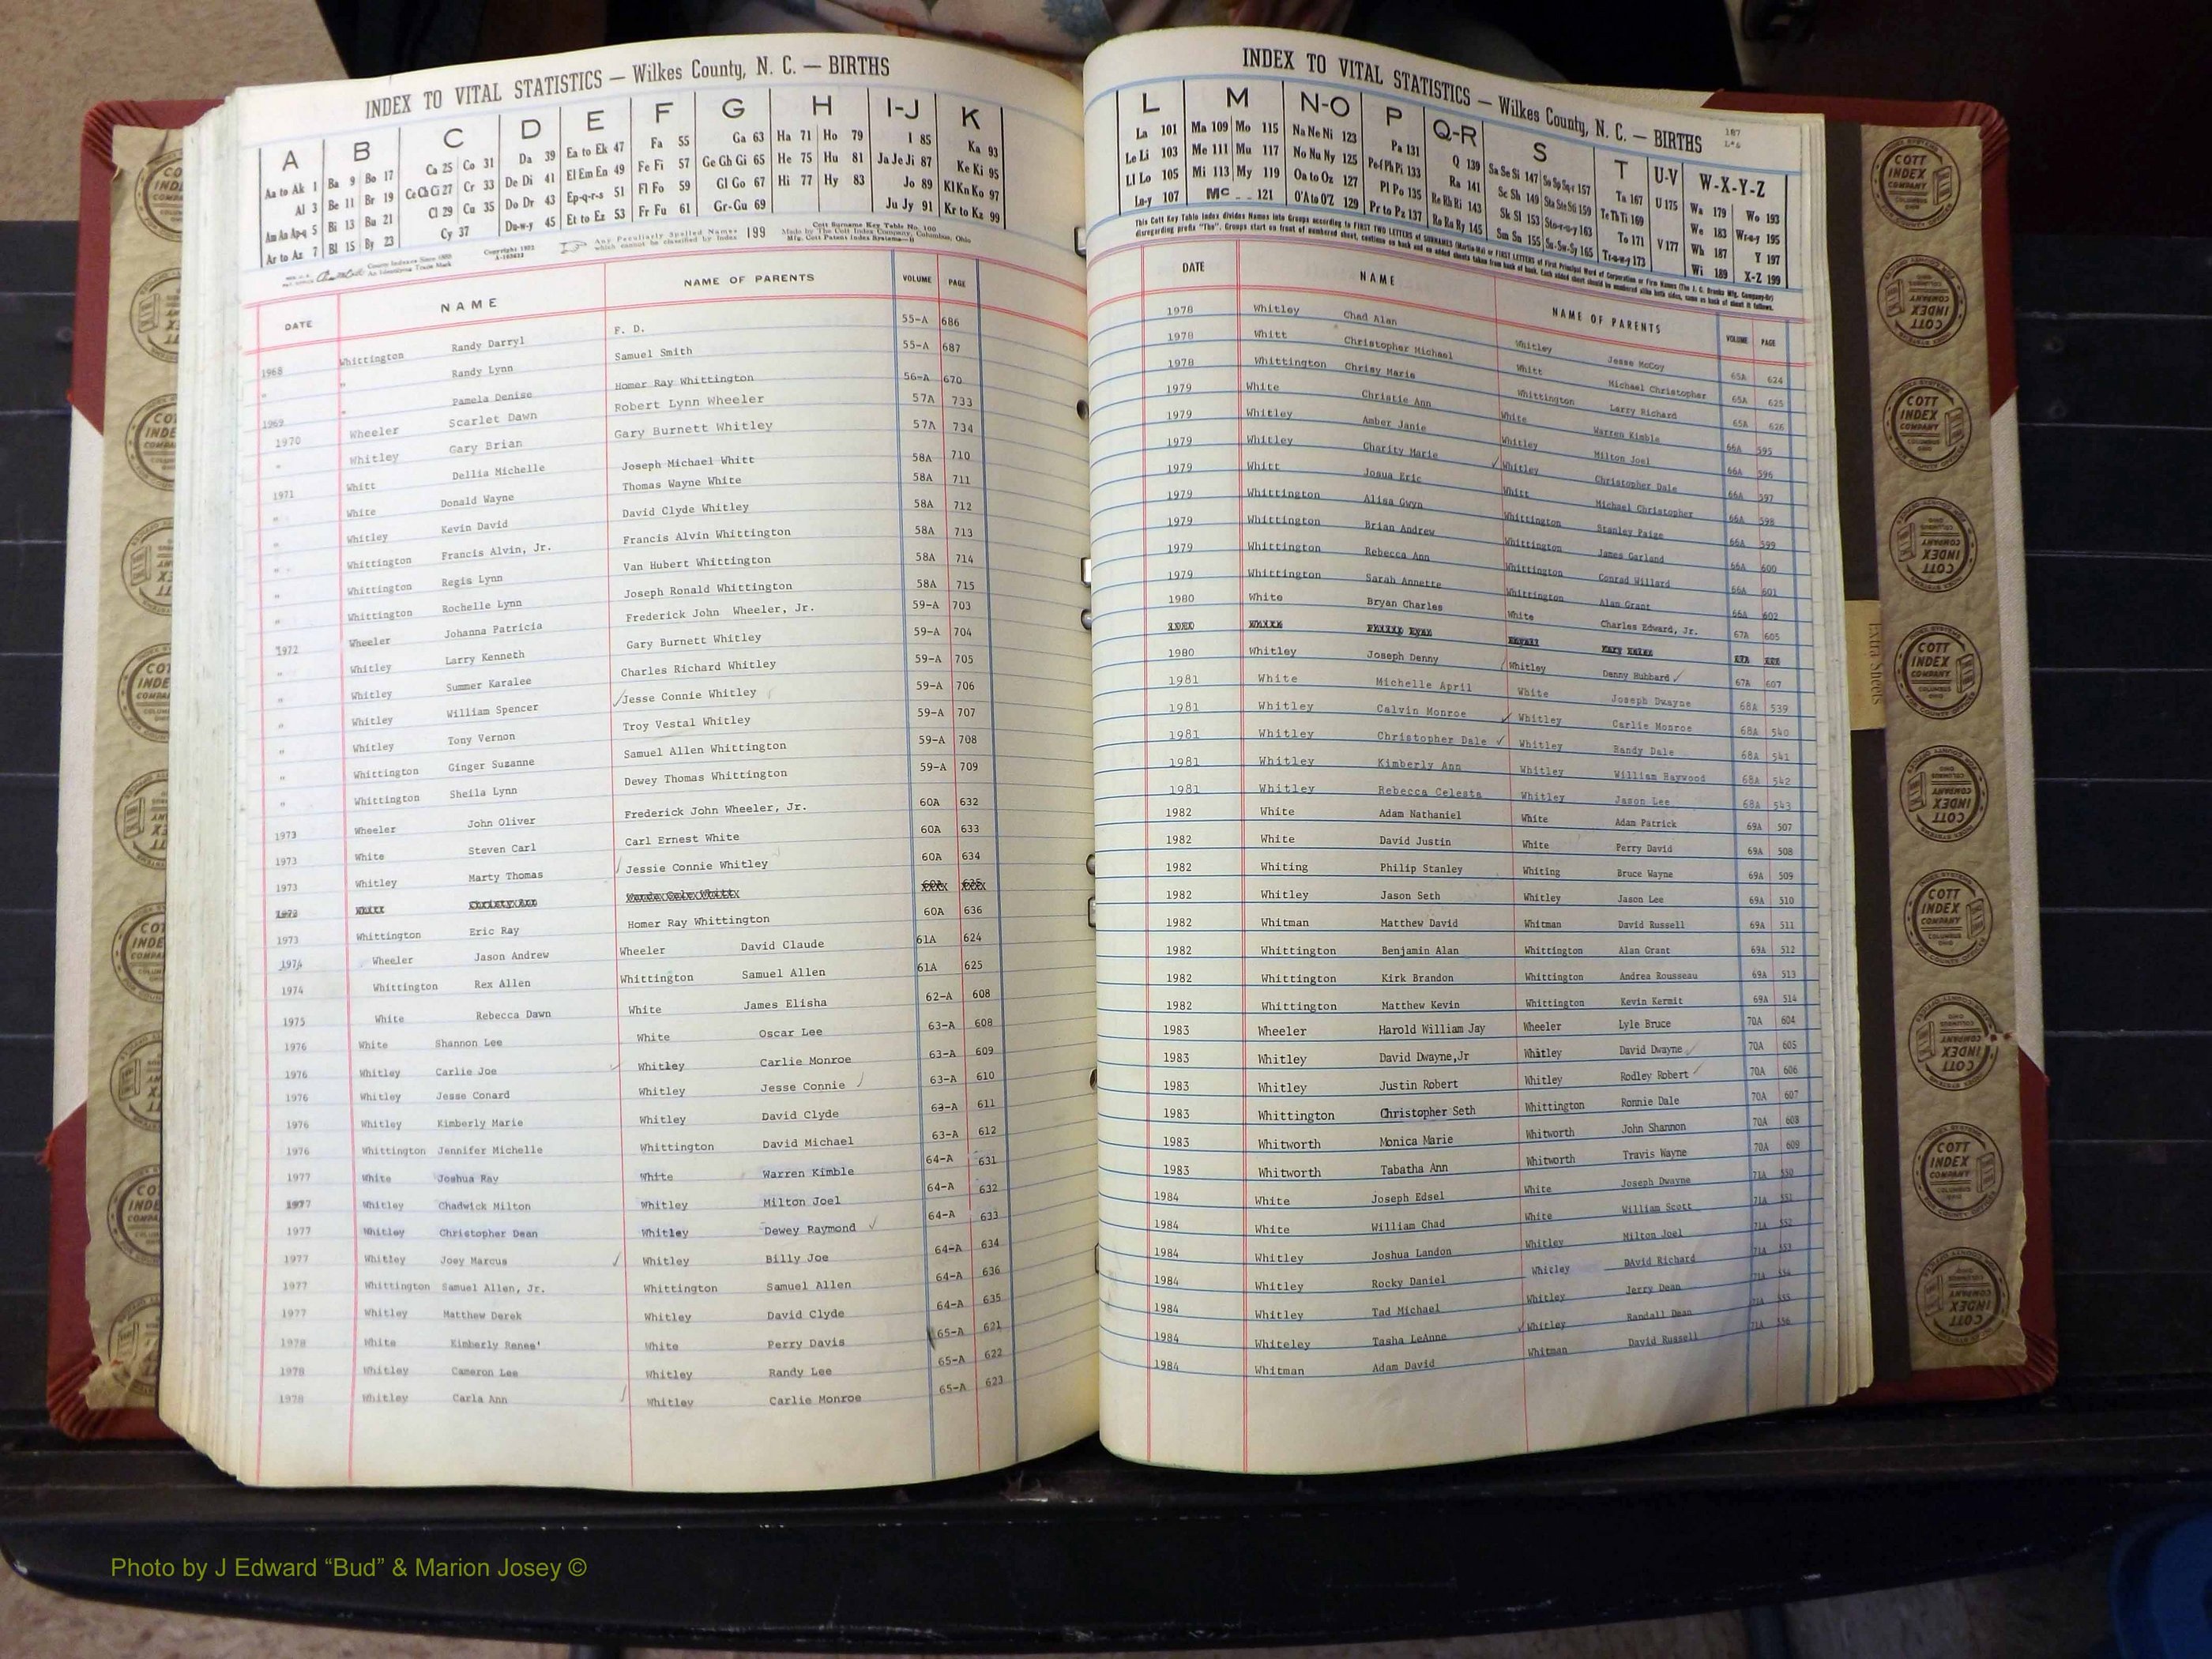 INDEX TO VITAL STATISTICS — Wilkes County, N. C. — BIRTHS
A B C D E F G H I-J K
Aa to Ak 1 Ba 9 Bo 17 Ca 25 Co 31 Da 39 Ea to Ek 47 Fa 55 Ga 63 Ha 71 Ho 79 I 85 Ka 93
Al 3 Be 11 Br 19 Ce Ch Ci 27 Cr 33 De Di 41 El Em En 49 Fe Fi 57 Ge Gh Gi 65 He 75 Hu 81 Ja Je Ji 87 Ke Ki 95
Am An Ap-q 5 Bi 13 Bu 21 Cl 29 Cu 35 Do Dr 43 Ep-q-r-s 51 Fl Fo 59 Gl Go 67 Hi 77 Hy 83 Jo 89 Kl Kn Ko 97
Ar to Az 7 Bl 15 By 23 Cy 37 Du-w-y 45 Et to Ez 53 Fr Fu 61 Gr-Gu 69 Ju Jy 91 Kr to Kz 99
Any Peculiarly Spelled Names which cannot be classified by Index 199
Cott Surname Key Table No. 100
Made by The Cott Index Company, Columbus, Ohio
DATE NAME NAME OF PARENTS VOLUME PAGE
1968 Whittington Randy Darryl F. D. 55-A 686
" " Randy Lynn Samuel Smith 55-A 687
1969 " Pamela Denise Homer Ray Whittington 56-A 670
1970 Wheeler Scarlet Dawn Robert Lynn Wheeler 57A 733
" Whitley Gary Brian Gary Burnett Whitley 57A 734
1971 Whitt Dellia Michelle Joseph Michael Whitt 58A 710
" White Donald Wayne Thomas Wayne White 58A 711
" Whitley Kevin David David Clyde Whitley 58A 712
" Whittington Francis Alvin, Jr. Francis Alvin Whittington 58A 713
" Whittington Regis Lynn Van Hubert Whittington 58A 714
" Whittington Rochelle Lynn Joseph Ronald Whittington 58A 715
1972 Wheeler Johanna Patricia Frederick John Wheeler, Jr. 59-A 703
" Whitley Larry Kenneth Gary Burnett Whitley 59-A 704
" Whitley Summer Karalee Charles Richard Whitley 59-A 705
" Whitley William Spencer Jesse Connie Whitley 59-A 706
" Whitley Tony Vernon Troy Vestal Whitley 59-A 707
" Whittington Ginger Suzanne Samuel Allen Whittington 59-A 708
" Whittington Sheila Lynn Dewey Thomas Whittington 59-A 709
1973 Wheeler John Oliver Frederick John Wheeler, Jr. 60A 632
1973 White Steven Carl Carl Ernest White 60A 633
1973 Whitley Marty Thomas Jessie Connie Whitley 60A 634
1973 Whittington Eric Ray Homer Ray Whittington 60A 636
1974 Wheeler Jason Andrew Wheeler David Claude 61A 624
1974 Whittington Rex Allen Whittington Samuel Allen 61A 625
1975 White Rebecca Dawn White James Elisha 62-A 608
1976 White Shannon Lee White Oscar Lee 63-A 608
1976 Whitley Carlie Joe Whitley Carlie Monroe 63-A 609
1976 Whitley Jesse Conard Whitley Jesse Connie 63-A 610
1976 Whitley Kimberly Marie Whitley David Clyde 63-A 611
1976 Whittington Jennifer Michelle Whittington David Michael 63-A 612
1977 White Joshua Ray White Warren Kimble 64-A 631
1977 Whitley Chadwick Milton Whitley Milton Joel 64-A 632
1977 Whitley Christopher Dean Whitley Dewey Raymond 64-A 633
1977 Whitley Joey Marcus Whitley Billy Joe 64-A 634
1977 Whittington Samuel Allen, Jr. Whittington Samuel Allen 64-A 636
1977 Whitley Matthew Derek Whitley David Clyde 64-A 635
1978 White Kimberly Renee' White Perry Davis 65-A 621
1978 Whitley Cameron Lee Whitley Randy Lee 65-A 622
1978 Whitley Carla Ann Whitley Carlie Monroe 65-A 623
INDEX TO VITAL STATISTICS — Wilkes County, N. C. — BIRTHS
187
L M N-O P Q-R S T U-V W-X-Y-Z
La 101 Ma 109 Mo 115 Na Ne Ni 123 Pa 131 Q 139 Sa Se Si 147 So Sp Sq-r 157 Ta 167 U 175 Wa 179 Wo 193
Le Li 103 Me 111 Mu 117 No Nu Ny 125 Pe-f Ph Pi 133 Ra 141 Sc Sh 149 Sta Ste Sti 159 Te Th Ti 169 V 177 We 183 Wr-u-y 195
Ll Lo 105 Mi 113 My 119 Oa to Oz 127 Pl Po 135 Re Rh Ri 143 Sk Sl 153 Sto-r-u-y 163 To 171 Wh 187 Y 197
Lu-y 107 Mc 121 O'A to O'Z 129 Pr to Pz 137 Ro Ru Ry 145 Sm Sn 155 Su-Sw-Sy 165 Tr-u-w-y 173 Wi 189 X-Z 199
DATE NAME NAME OF PARENTS VOLUME PAGE
1978 Whitley Chad Alan Whitley Jesse McCoy 65A 624
1978 Whitt Christopher Michael Whitt Michael Christopher 65A 625
1978 Whittington Chrisy Marie Whittington Larry Richard 65A 626
1979 White Christie Ann White Warren Kimble 66A 595
1979 Whitley Amber Janie Whitley Milton Joel 66A 596
1979 Whitley Charity Marie Whitley Christopher Dale 66A 597
1979 Whitt Josua Eric Whitt Michael Christopher 66A 598
1979 Whittington Alisa Gwyn Whittington Stanley Paige 66A 599
1979 Whittington Brian Andrew Whittington James Garland 66A 600
1979 Whittington Rebecca Ann Whittington Conrad Willard 66A 601
1979 Whittington Sarah Annette Whittington Alan Grant 66A 602
1980 White Bryan Charles White Charles Edward, Jr. 67A 605
1980 Whitley Joseph Denny Whitley Danny Hubbard 67A 607
1981 White Michelle April White Joseph Dwayne 68A 539
1981 Whitley Calvin Monroe Whitley Carlie Monroe 68A 540
1981 Whitley Christopher Dale Whitley Randy Dale 68A 541
1981 Whitley Kimberly Ann Whitley William Haywood 68A 542
1981 Whitley Rebecca Celesta Whitley Jason Lee 68A 543
1982 White Adam Nathaniel White Adam Patrick 69A 507
1982 White David Justin White Perry David 69A 508
1982 Whiting Philip Stanley Whiting Bruce Wayne 69A 509
1982 Whitley Jason Seth Whitley Jason Lee 69A 510
1982 Whitman Matthew David Whitman David Russell 69A 511
1982 Whittington Benjamin Alan Whittington Alan Grant 69A 512
1982 Whittington Kirk Brandon Whittington Andrea Rousseau 69A 513
1982 Whittington Matthew Kevin Whittington Kevin Kermit 69A 514
1983 Wheeler Harold William Jay Wheeler Lyle Bruce 70A 604
1983 Whitley David Dwayne,Jr Whitley David Dwayne 70A 605
1983 Whitley Justin Robert Whitley Rodley Robert 70A 606
1983 Whittington Christopher Seth Whittington Ronnie Dale 70A 607
1983 Whitworth Monica Marie Whitworth John Shannon 70A 608
1983 Whitworth Tabatha Ann Whitworth Travis Wayne 70A 609
1984 White Joseph Edsel White Joseph Dwayne 71A 550
1984 White William Chad White William Scott 71A 551
1984 Whitley Joshua Landon Whitley Milton Joel 71A 552
1984 Whitley Rocky Daniel Whitley DAvid Richard 71A 553
1984 Whitley Tad Michael Whitley Jerry Dean 71A 554
1984 Whiteley Tasha LeAnne Whitley Randall Dean 71A 555
1984 Whitman Adam David Whitman David Russell 71A 556
Extra Sheets
COTT INDEX COMPANY COLUMBUS OHIO
Photo by J Edward “Bud” & Marion Josey ©